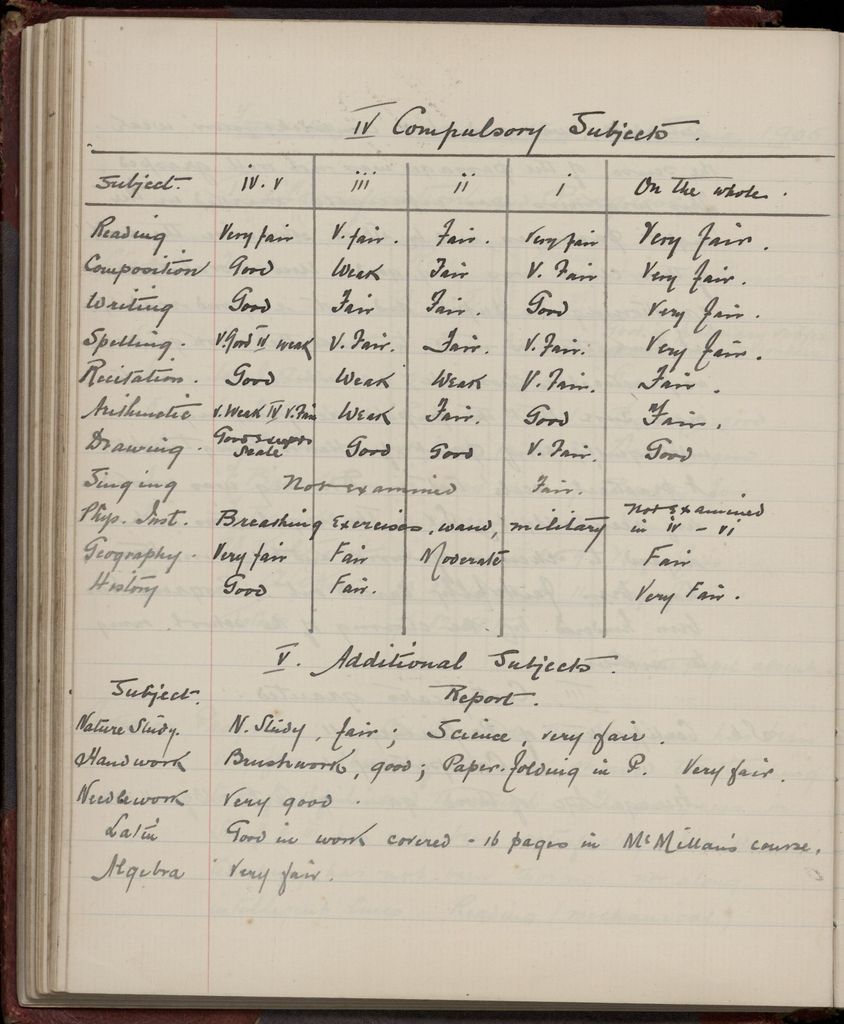 IV Compulsory Subjects.
Subject. iv. v iii ii i On the whole.
Reading Very fair V. fair. Fair. Very fair Very fair.
Composition Good Weak Fair V. Fair Very fair.
Writing Good Fair Fair. Good Very fair.
Spelling. V. Good IV weak V. Fair. Fair. V. Fair. Very fair.
Recitation. Good Weak Weak V. Fair. Fair.
Arithmetic V. Weak IV V. Fair Weak Fair. Good Fair.
Drawing. Good Scale Good Good V. Fair. Good
Singing Not examined Fair.
Phys. Inst. Breathing Exercises, wand, military not examined in IV - VI
Geography. Very fair Fair Moderate Fair
History Good Fair. Very Fair.
V. Additional Subjects.
Subject. Report.
Nature Study. N. Study, fair; Science, very fair.
Handwork Brushwork, good; Paper-folding in P. Very fair.
Needlework Very good.
Latin Good in work covered - 16 pages in McMillan's course.
Algebra Very fair.